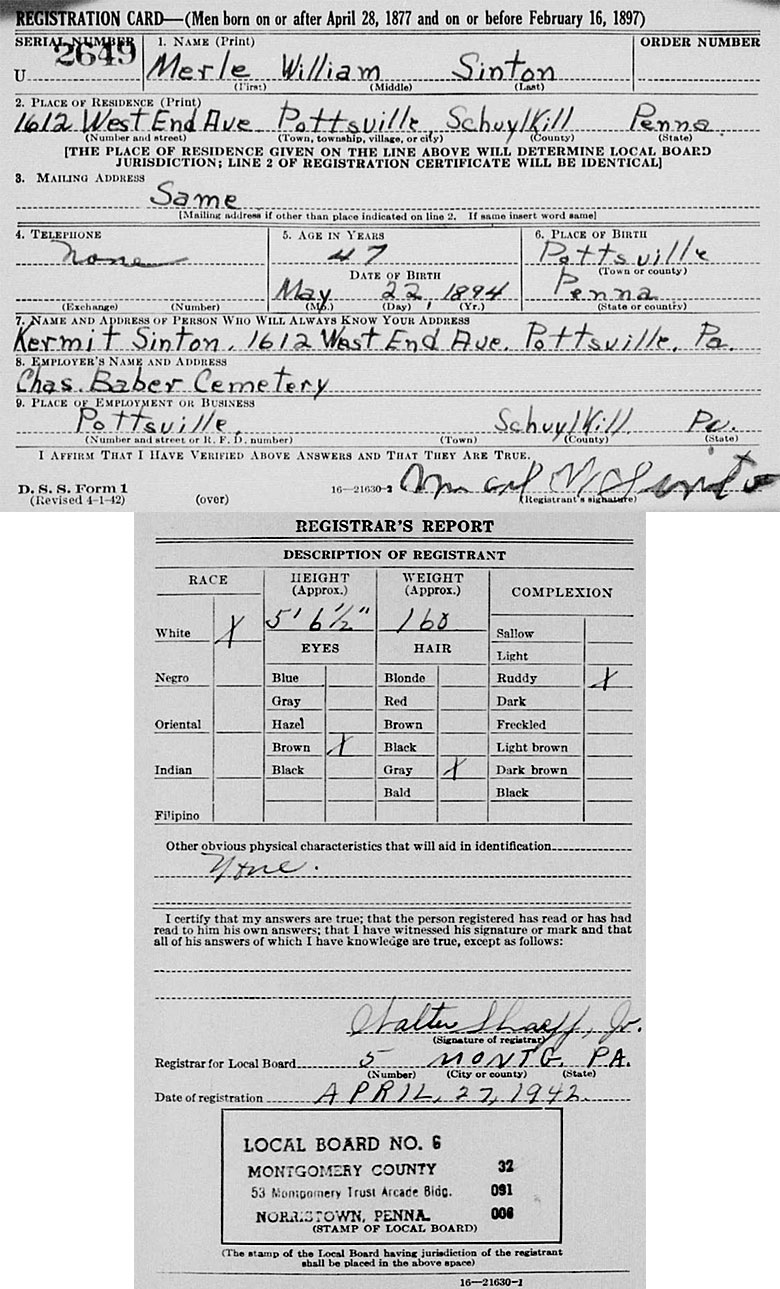 REGISTRATION CARD—(Men born on or after April 28, 1877 and on or before February 16, 1897)
SERIAL NUMBER 1. NAME (Print) ORDER NUMBER
U 2649 Merle William Sinton
(First) (Middle) (Last)
2. PLACE OF RESIDENCE (Print)
1612 West End Ave Pottsville, Schuylkill Penna
(Number and street) (Town, township, village, or city) (County) (State)
[THE PLACE OF RESIDENCE GIVEN ON THE LINE ABOVE WILL DETERMINE LOCAL BOARD
JURISDICTION; LINE 2 OF REGISTRATION CERTIFICATE WILL BE IDENTICAL]
3. MAILING ADDRESS
Same
[Mailing address if other than place indicated on line 2. If same insert word same]
4. TELEPHONE 5. AGE IN YEARS 6. PLACE OF BIRTH
None 47 Pottsville
(Town or county)
DATE OF BIRTH
May 22, 1894 Penna
(Exchange) (Number) (Mo.) (Day) (Yr.) (State or country)
7. NAME AND ADDRESS OF PERSON WHO WILL ALWAYS KNOW YOUR ADDRESS
Kermit Sinton, 1612 West End Ave. Pottsville, Pa.
8. EMPLOYER'S NAME AND ADDRESS
Chas. Baber Cemetery
9. PLACE OF EMPLOYMENT OR BUSINESS
Pottsville, Schuylkill Pa.
(Number and street or R. F. D. number) (Town) (County) (State)
I AFFIRM THAT I HAVE VERIFIED ABOVE ANSWERS AND THAT THEY ARE TRUE.
D. S. S. Form 1
(Revised 4-1-42) (over) 16—21630-1 (Registrant's signature)
REGISTRAR'S REPORT
DESCRIPTION OF REGISTRANT
RACE HEIGHT (Approx.) WEIGHT (Approx.) COMPLEXION
White X 5' 6½" 160 Sallow
EYES HAIR Light
Negro Blue Blonde Ruddy X
Gray Red Dark
Oriental Hazel Brown Freckled
Brown X Black Light brown
Indian Black Gray X Dark brown
Bald Black
Filipino
Other obvious physical characteristics that will aid in identification
None.
I certify that my answers are true; that the person registered has read or has had
read to him his own answers; that I have witnessed his signature or mark and that
all of his answers of which I have knowledge are true, except as follows:
Walter Shaeff, Jr.
(Signature of registrar)
Registrar for Local Board 5 MONTG. PA.
(Number) (City or county) (State)
Date of registration APRIL, 27, 1942.
LOCAL BOARD NO. 6
MONTGOMERY COUNTY 32
53 Montgomery Trust Arcade Bldg. 091
NORRISTOWN, PENNA. 006
(STAMP OF LOCAL BOARD)
(The stamp of the Local Board having jurisdiction of the registrant
shall be placed in the above space)
16—21630-1